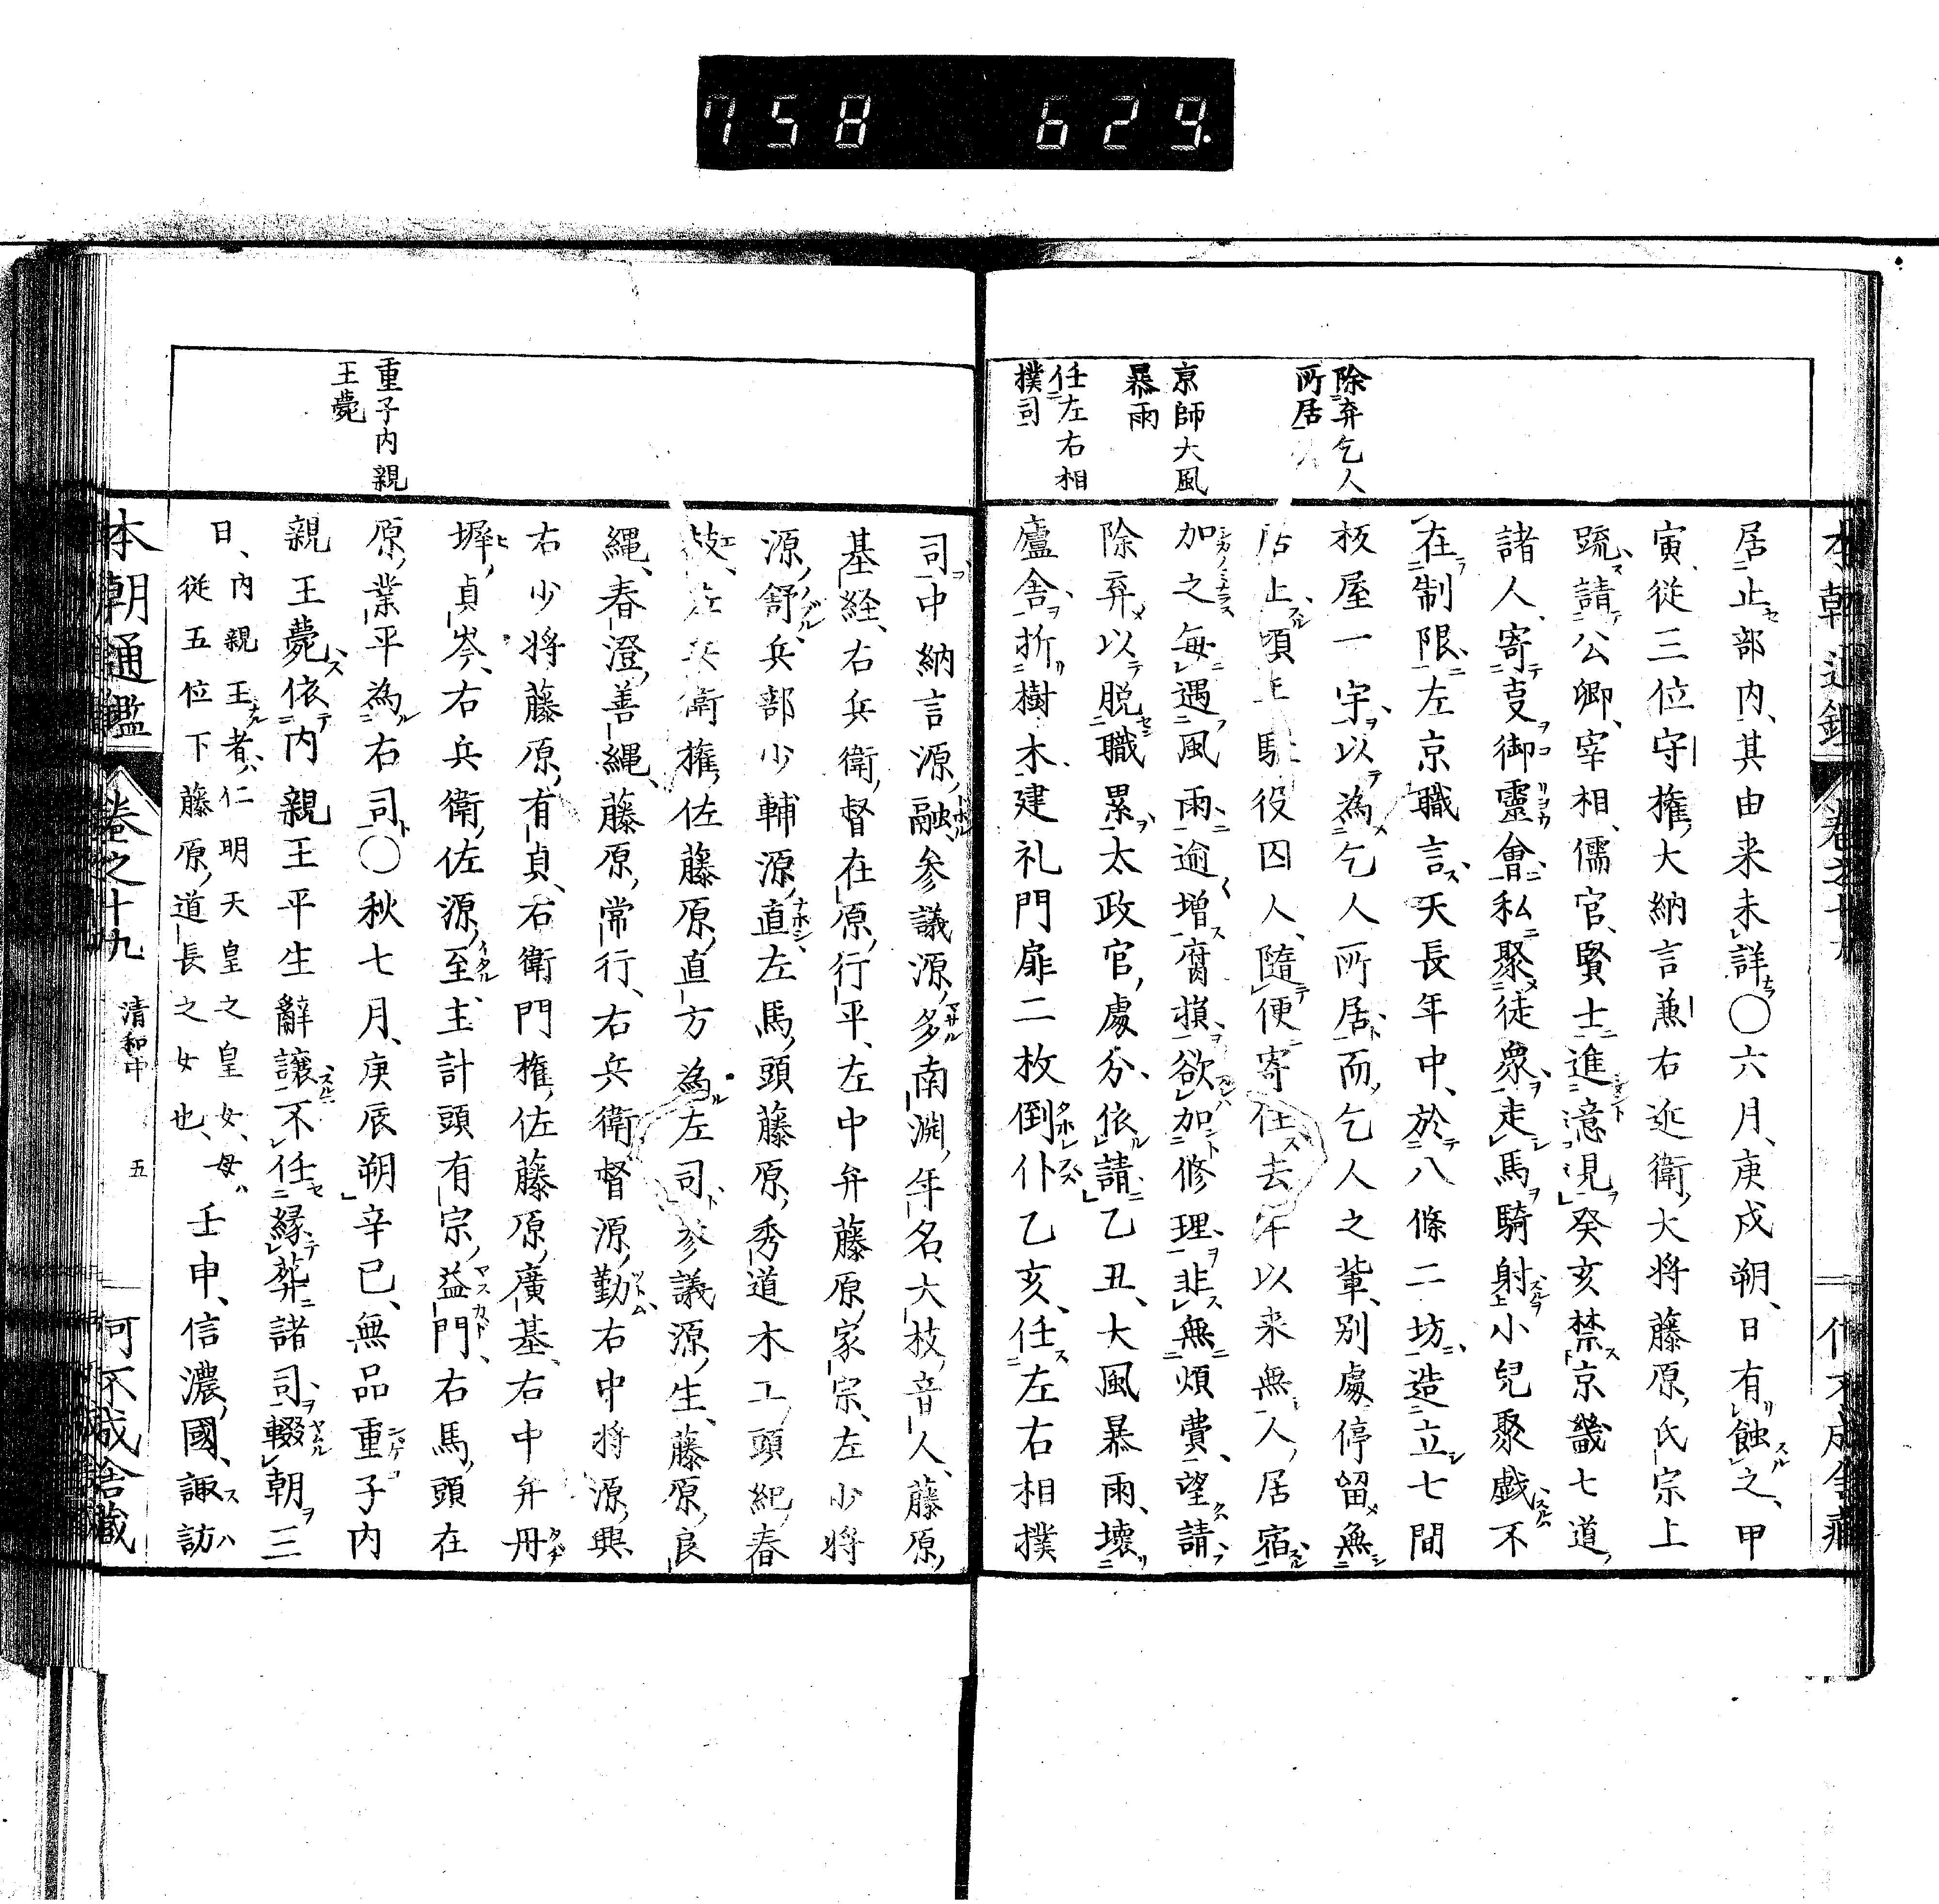 758 629.
本朝通鑑 卷之十九
除弃乞人
所居
京師大風
暴雨
任左右相
撲司
居止部内、其由来未詳○六月、庚戌朔、日有蝕之、甲
寅、従三位守權大納言兼右近衛大将藤原氏宗上
䟽請公卿、宰相、儒官、賢士進意見癸亥禁京畿七道
諸人、寄事御靈會私聚徒衆走馬騎射小兒聚戯不
在制限左京職言、天長年中、於八條二坊、造立七間
板屋一宇、以為乞人所居、而乞人之輩、別處停留、無
止頃役囚人、隨便寄住去年以来無人居宿
加之毎遇風雨、逾增腐損欲加修理、非無煩費、望請
除弃以脱職累、太政官處分、依請乙丑、大風暴雨、壊
廬舎、折樹木、建礼門扉二枚倒仆乙亥、任左右相撲
司、中納言源融、参議源多南淵年名、大枝音人、藤原
基経、右兵衛督在原行平、左中弁藤原家宗、左少将
源舒、兵部少輔源直左馬頭藤原秀道木工頭紀春
枝、左兵衛權佐藤原直方為左司、参議源生、藤原良
縄、春澄善縄、藤原常行、右兵衛督源勤、右中将源興、
右少将藤原有貞、右衛門權佐藤原廣基、右中弁丹
墀貞岑、右兵衛佐源至、主計頭有宗益門、右馬頭在
原業平為右司○秋七月、庚辰朔辛巳、無品重子内
親王薨依内親王平生辭譲、不任縁葬諸司、輟朝三
日、内親王者、仁明天皇之皇女、母、
従五位下藤原道長之女也、壬申、信濃國、諏訪
重子内親
王薨
本朝通鑑 卷之十九 清和中 五 何不成舎藏